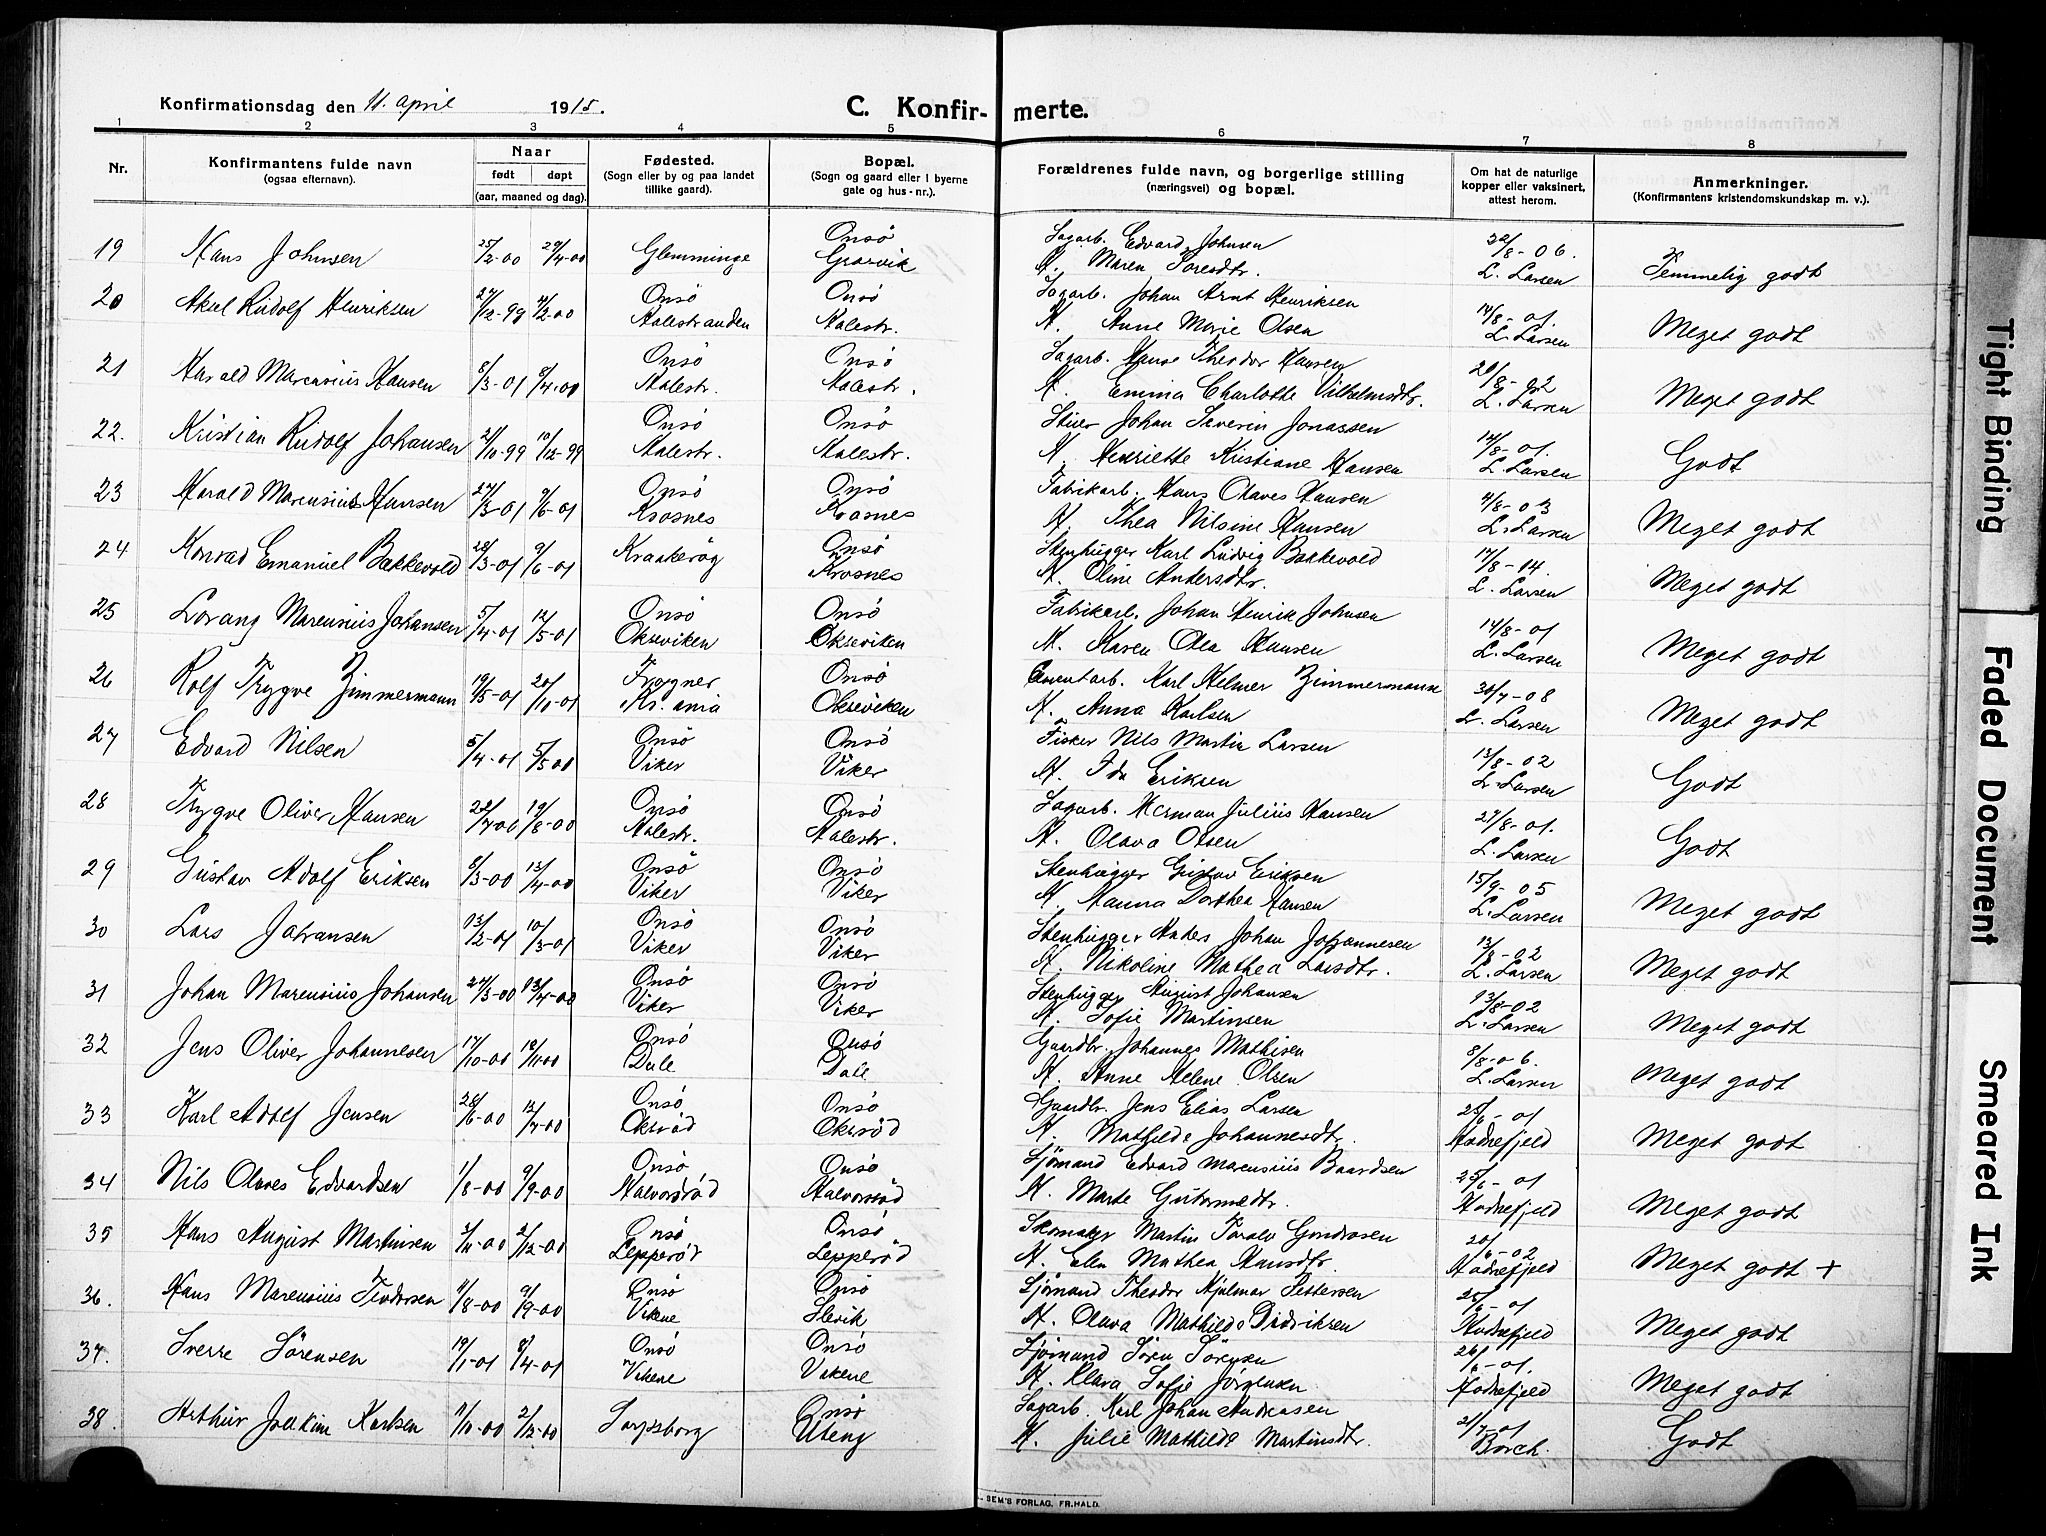 Konfirmationsdag den 11. april 1915. C. Konfir- merte.
1 2 3 4 5 6 7 8
Nr.
Konfirmantens fulde navn
(ogsaa efternavn).
Naar
født døpt
(aar, maaned og dag).
Fødested.
(Sogn eller by og paa landet
tillike gaard).
Bopæl.
(Sogn og gaard eller i byerne
gate og hus-nr.).
Forældrenes fulde navn, og borgerlige stilling
(næringsvei) og bopæl.
Om hat de naturlige
kopper eller vaksinert,
attest herom.
Anmerkninger.
(Konfirmantens kristendomskundskap m. v.).
19 Hans Johnsen 25/2-00 29/4-00 Glemminge Onsö Graavik Sagarb. Edvard Johnsen 22/8-06.
H. Maren Toresdtr. L. Larsen Temmelig godt
20 Aksel Rudolf Henriksen 27/12-99 4/2-00 Onsö Aalestranden Onsö Aalestr. Sagarb. Johan Arnt Henriksen 14/8-01.
H. Anne Marie Olsen L. Larsen Meget godt
21 Harald Marensius Hansen 8/3-01 8/4-00 Onsö Aalestr. Onsö Aalestr. Sagarb. Hans Theodor Hansen 20/8-02
H. Emma Charlotte Vilhelmsdtr. L. Larsen Meget godt
22. Kristian Rudolf Johansen 21/10-99 10/12-99 Onsö Aalestr. Onsö Aalestr. Stuer Johan Severin Jonassen 14/8-01.
H. Henriette Kristiane Hansen L. Larsen Godt
23 Harald Marensius Hansen 27/3-01 9/6-01 Onsö Krosnes Onsö Krosnes Fabrikarb. Hans Olaves Hansen 4/8-03
H. Thea Nilsine Hansen L. Larsen Meget godt
24 Konrad Emanuel Bakkevold 28/3-01 9/6-01 Kraakeröy Onsö Krosnes Stenhugger Karl Ludvig Bakkevold 17/8-14.
H. Oline Andersdtr. L. Larsen Meget godt
25 Lorang Marensius Johansen 5/4-01 12/5-01 Onsö Okseviken Onsö Okseviken Fabrikarb. Johan Henrik Johnsen 14/8-01
H. Karen Olea Hansen L. Larsen Meget godt
26 Rolf Trygve Zimmermann 19/5-01 20/10-01 Frogner Kr.ania Onsö Okseviken Cementarb. Karl Helmer Zimmermann 30/7-08
H. Anna Karlsen L. Larsen Meget godt
27 Edvard Nilsen 5/4-01 5/5 00 Onsö Viker Onsö Viker Fisker Nils Martin Larsen 13/8-02
H. Ida Eriksen L. Larsen Godt
28 Trygve Oliver Hansen 22/7 00 19/8-00 Onsö Aalestr. Onsö Aalestr. Sagarb. Herman Julius Hansen 27/8-01.
H. Olava Olsen L. Larsen Godt
29 Gustav Adolf Eriksen 8/3-00 13/4-00 Onsö Viker Onsö Viker Stenhugger Gustav Eriksen 15/9-05
H. Hanna Dorthea Hansen L. Larsen Meget godt
30 Lars Johansen 13/2-01 10/3-01 Onsö Viker Onsö Viker Stenhugger Anders Johan Johannesen 13/8-02
H. Nikoline Mathea Larsdtr. L. Larsen Meget godt
31 Johan Marensius Johansen 24/3-00 13/4-00 Onsö Viker Onsö Viker Stenhugger August Johansen 13/8-02
H. Sofie Martinsen L. Larsen Meget godt
32 Jens Oliver Johannesen 17/10-00 18/11 00 Onsö Dale Onsö Dale Gaardbr. Johannes Mathisen 8/8-06.
H. Anne Helene Olsen L. Larsen Meget godt
33 Karl Adolf Jensen 28/6-00 12/7-00 Onsö Oksröd Onsö Oksröd Gaardbr. Jens Elias Larsen 25/6-01
H. Mathilde Johannesdtr. Hadnefjeld Meget godt
34 Nils Olaves Edvardsen 1/8-00 9/9-00 Onsö Halvorsröd Onsö Halvorsröd Sjömand Edvard Marensius Baardsen 25/6-01
H. Marte Guttormsdtr. Hadnefjeld Meget godt
35 Hans August Martinsen 3/11-00 2/12-00 Onsö Lepperöd Onsö Lepperöd Skomaker Martin Torale 20/6-02
H. Elen Mathea Hansdtr. Hadnefjeld Meget godt +
36. Hans Marensius Teodorsen 4/8-00 9/9-00 Onsö Vikene Onsö Slevik Sjömand Theodor Hjelmar Pettersen 25/6-01
H. Olava Mathilde Didriksen Hadnefjeld Meget godt
37. Sverre Sörensen 19/1-01 8/4-01 Onsö Vikene Onsö Vikene Sjömand Sören Sörensen 26/6-01.
H. Klara Sofie Jörgensen Hadnefjeld Meget godt
38. Arthur Joakim Karlsen 1/10-00 2/12-00 Sarpsborg Onsö Uteng Sagarb. Karl Johan Andreasen 2/7-01
H. Julie Mathilde Martinsdtr. Borch. Godt
SEM'S FORLAG, FR.HALD.
Tight Binding
Faded Document
Smeared Ink